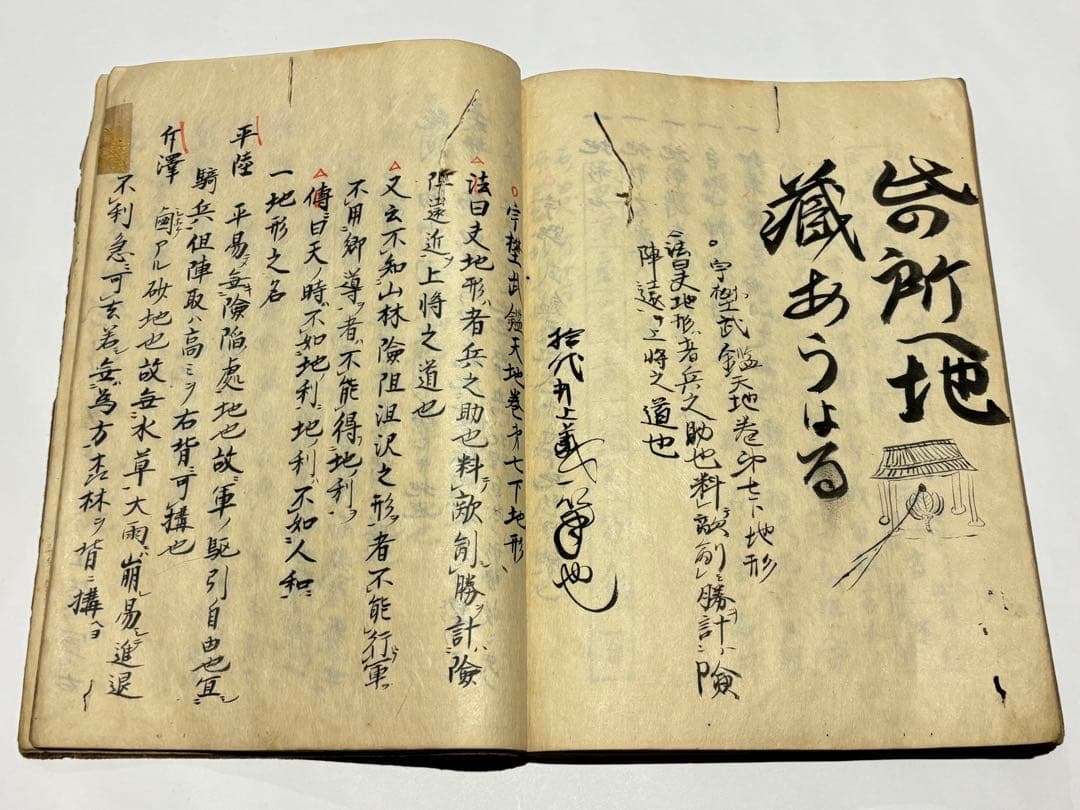 此の所へ地
藏あうはる
〇宇極武鑑天地巻第七下地形
法曰夫地形ハ者兵之助也料テ敵ヲ制シ勝ヲ計ハ險
陣遠ヲ上將之道也
拾代井上義一筆也
〇宇極武鑑天地巻第七下地形
△法曰夫地形ハ者兵之助也料テ敵ヲ制シ勝ヲ計ハ險
阨遠近ヲ上將之道也
△又云不知山林險阻沮沢之形ヲ者不能行軍ヲ
不用郷導ヲ者不能得地利ヲ
△傳曰天ノ時ハ不如地利ニ地ノ利ハ不如人和ニ
一地形之名
平陸 平易ニ無險陥處ノ地也故ニ軍ノ駆引自由也宜シ
騎兵ニ但陣取ハ高ミヲ右背ニ可構也
斥澤 アル砂地也故無水草大雨ニハ崩レ易シテ進退
不利急ニ可去若無為方森林ヲ背ニ構ヨ